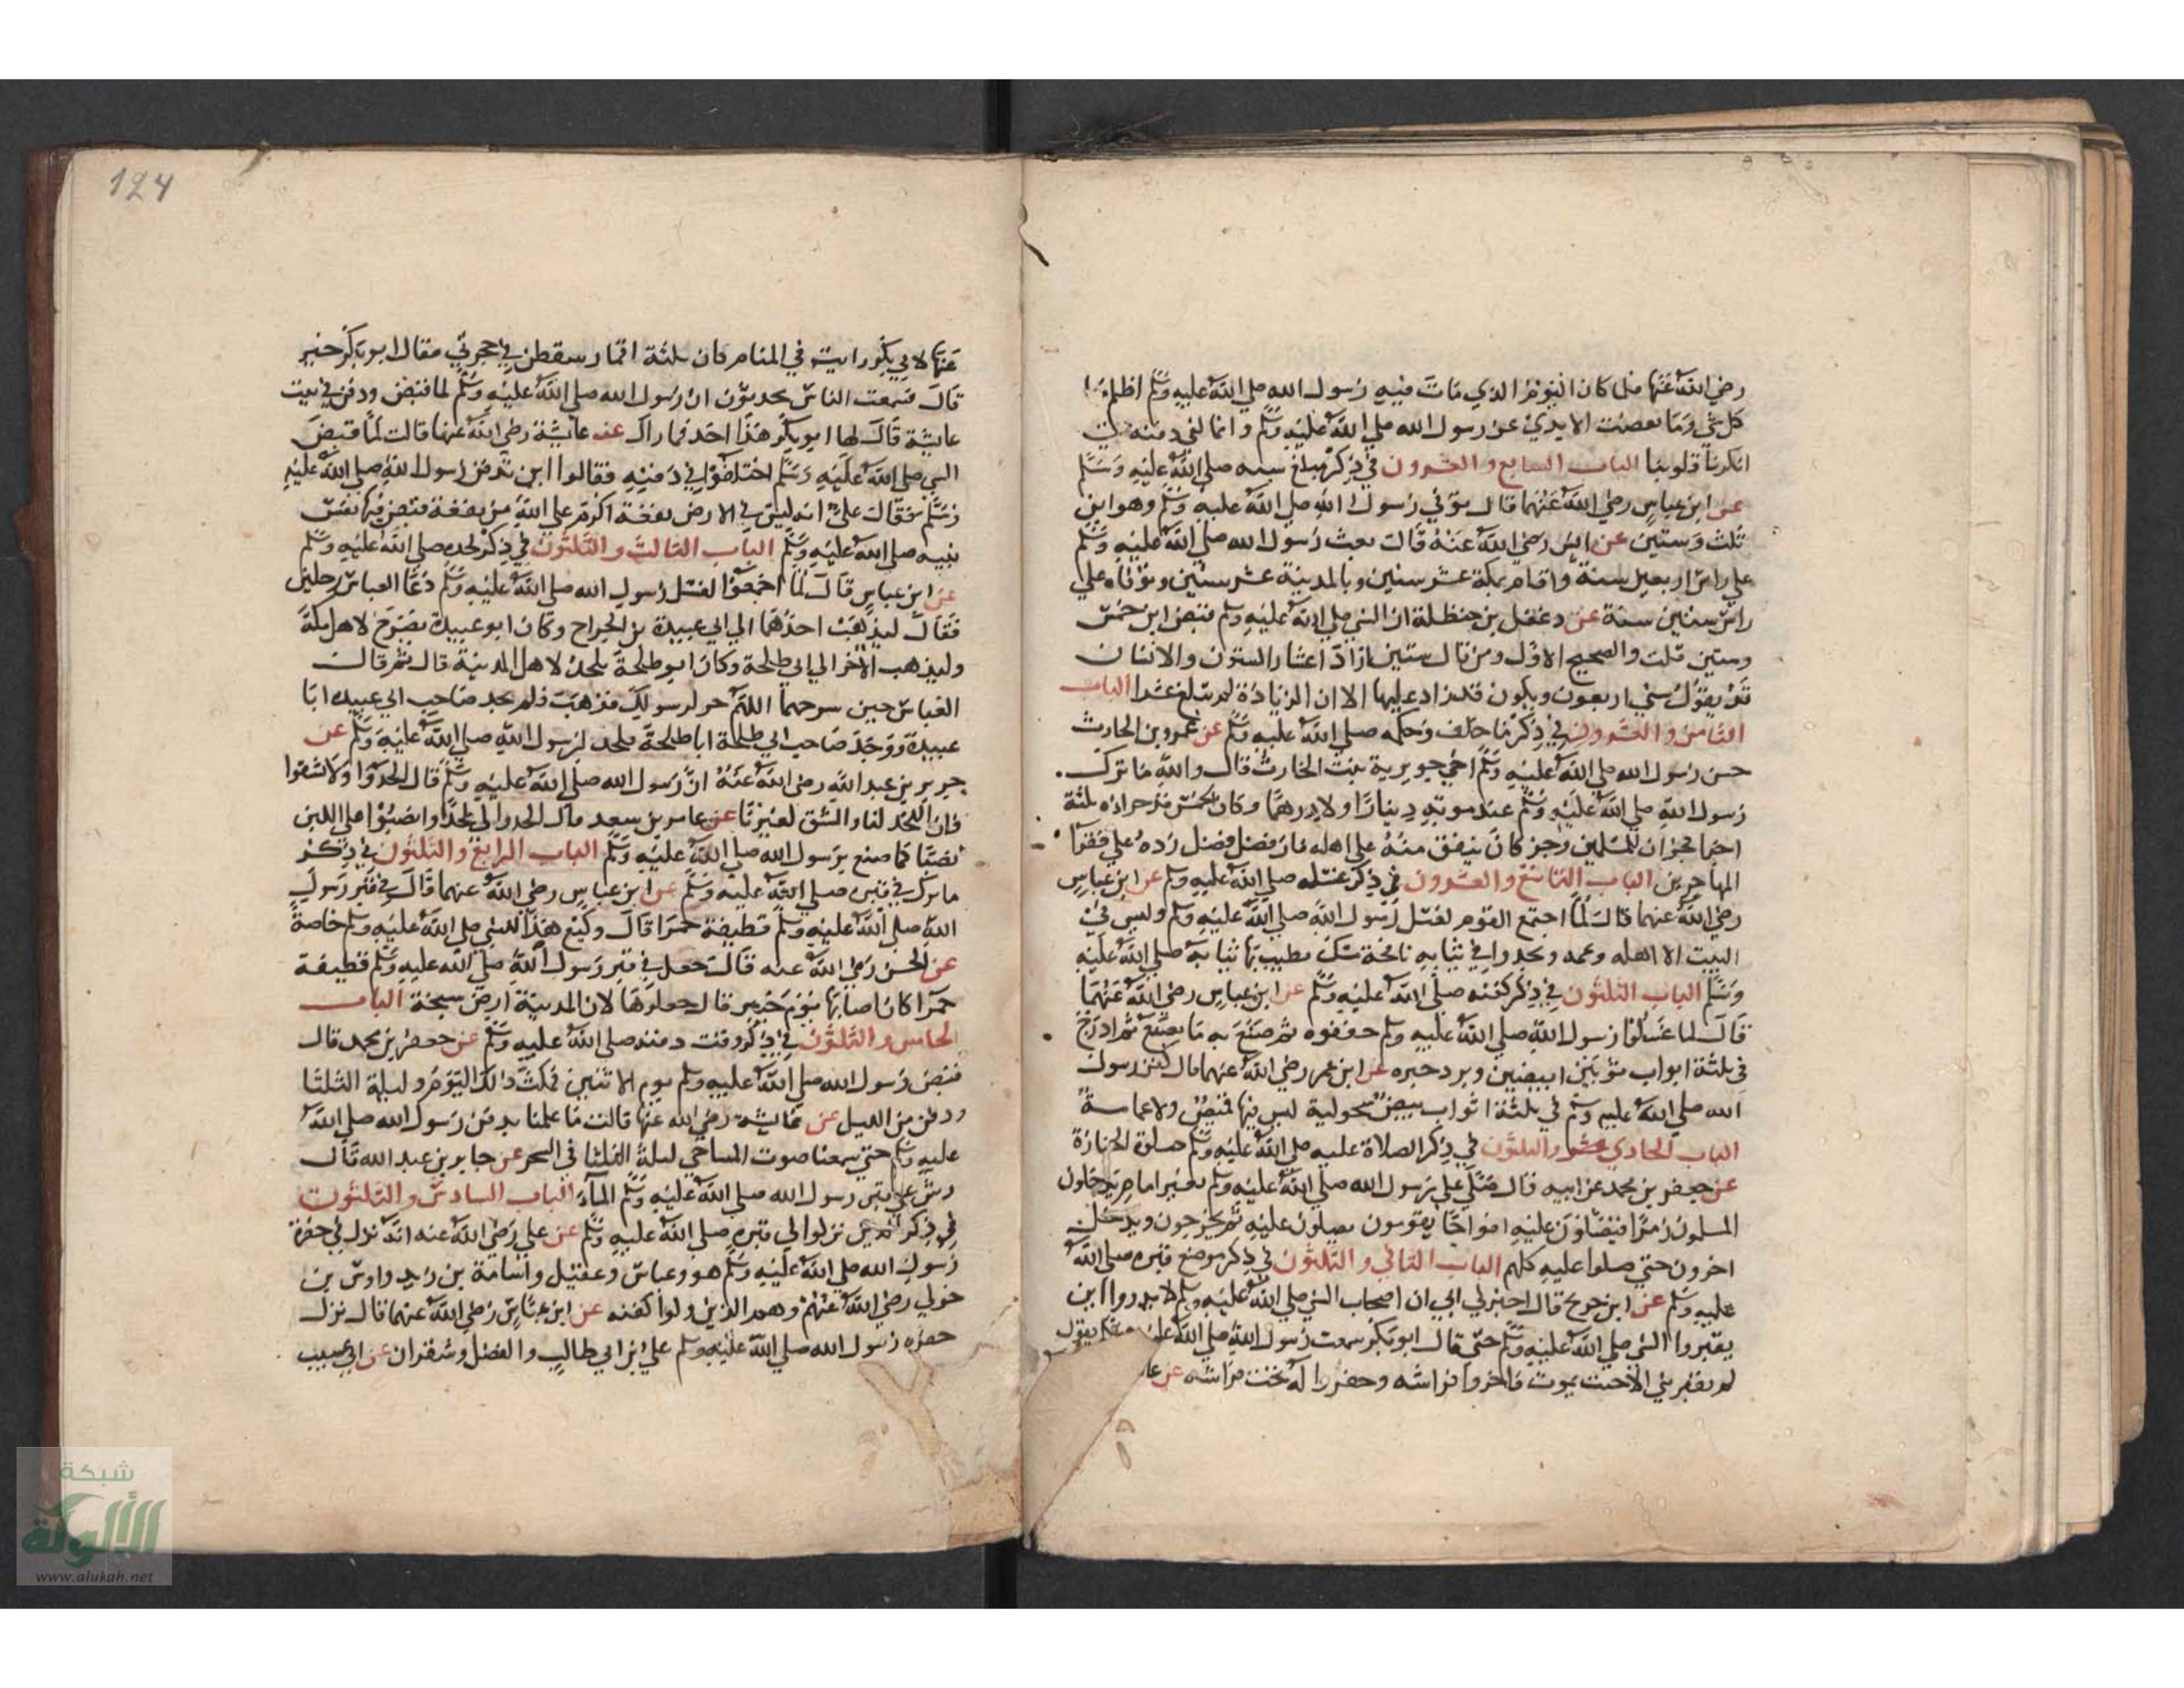 رضي الله عنها فلما كان اليوم الذي مات فيه رسول الله صلي الله عليه وسلم اظلم
كل شي وما نفضت الايدي عن رسول الله صلي الله عليه وسلم وانا لفي دفنه حتي
انكرنا قلوبنا الباب السابع والعشرون في ذكر مبلغ سنه صلي الله عليه وسلم
عن ابن عباس رضي الله عنهما قال توفي رسول الله صلي الله عليه وسلم وهو ابن
ثلث وستين عن انس رضي الله عنه قال بعث رسول الله صلي الله عليه وسلم
علي راس اربعين سنة واقام بمكة عشر سنين وبالمدينة عشر سنين وتوفاه علي
راس ستين سنة عن دغفل بن حنظلة ان النبي صلي الله عليه وسلم قبض ابن خمس
وستين قلت والصحيح الاول ومن قال ستين اراد اعشار السنون والانسان
قد يقول سني اربعون ويكون قد زاد عليها الا ان الزيادة لم تبلغ عشرا الباب
الثامن والعشرون في ذكر ما خلف وحكمه صلي الله عليه وسلم عن عمرو بن الحارث
ختن رسول الله صلي الله عليه وسلم اخي جويرية بنت الحارث قال والله ما ترك
رسول الله صلي الله عليه وسلم عند موته دينارا ولا درهما وكان الخمس ثلثة
للمسلمين وجز كان ينفق منه علي اهله فان فضل فضل رده علي فقرا
المهاجرين الباب التاسع والعشرون في ذكر غسله صلي الله عليه وسلم عن ابن عباس
رضي الله عنهما قال لما اجتمع القوم لغسل رسول الله صلي الله عليه وسلم وليس في
البيت الا اهله وعمه صلي الله عليه
وسلم الباب الثلثون في ذكر كفنه صلي الله عليه وسلم عن ابن عباس رضي الله عنهما
قال لما غسلوا رسول الله صلي الله عليه وسلم جففوه ثم صنع به ما يصنع ثم ادرج
في ثلثة اثواب ثوبين ابيضين وبرد حبره عن ابن عمر رضي الله عنهما قال كفن رسول
الله صلي الله عليه وسلم في ثلثة اثواب بيض سحولية ليس فيها قميص ولا عمامة
الباب الحادي عشر والثلثون في ذكر الصلاة عليه صلي الله عليه وسلم صلوة الجنازة
عن جعفر بن محمد عن ابيه قال صلي علي رسول الله صلي الله عليه وسلم بغير امام يدخلون
المسلمون زمرا فيصلون عليه يصلون عليه ثم يخرجون ويدخل
اخرون حتي صلوا عليه كلهم الباب الثاني والثلثون في ذكر موضع قبره صلي الله
عليه وسلم عن ابن جريج قال اخبرني ابي ان اصحاب النبي صلي الله عليه وسلم لم يدروا اين
يقبروا النبي صلي الله عليه وسلم حتي قال ابو بكر سمعت رسول الله صلي الله عليه وسلم يقول
لم يقبر نبي الا حيث يموت فاخروا فراشه وحفروا له تحت فراشه عن عا
124
عنها لابي بكر رايت في المنام كان ثلثة اقمار سقطن في حجرتي فقال ابو بكر خير
قال فسمعت الناس يحدثون ان رسول الله صلي الله عليه وسلم لما قبض ودفن في بيت
عايشة قال لها ابو بكر هذا احد اقمارك عن عايشة رضي الله عنها قالت لما قبض
النبي صلي الله عليه وسلم اختلفوا في دفنه فقالوا اين تدفن رسول الله صلي الله عليه
وسلم فقال علي انه ليس في الارض بقعة اكرم علي الله من بقعة قبض فيها نفس
نبيه صلي الله عليه وسلم الباب الثالث والثلثون في ذكر لحده صلي الله عليه وسلم
عن ابن عباس قال لما اجمعوا لغسل رسول الله صلي الله عليه وسلم دعا العباس رجلين
فقال ليذهب احدهما الي ابي عبيدة بن الجراح وكان ابو عبيدة يضرح لاهل مكة
وليذهب الاخر الي ابي طلحة وكان ابو طلحة يلحد لاهل المدينة قال ثم قال
العباس حين سرحهما اللهم خر لرسولك فذهبا فلم يجد صاحب ابي عبيده ابا
عبيدة ووجد صاحب ابي طلحة ابا طلحة فلحد لرسول الله صلي الله عليه وسلم عن
جرير بن عبد الله رضي الله عنه ان رسول الله صلي الله عليه وسلم قال الحدوا ولا تشقوا
فان اللحد لنا والشق لغيرنا عن عامر بن سعد قال الحدوا لي لحدا وانصبوا علي اللبن
نصبا كما صنع برسول الله صلي الله عليه وسلم الباب الرابع والثلثون في ذكر
ما ترك في قبره صلي الله عليه وسلم عن ابن عباس رضي الله عنهما قال في قبر رسول
الله صلي الله عليه وسلم قطيفة حمرا قال وكيع هذا للنبي صلي الله عليه وسلم خاصة
عن الحسن رضي الله عنه قال جعل في قبر رسول الله صلي الله عليه وسلم قطيفة
حمرا كان اصابها يوم خيبر قال جعلوها لان المدينة ارض سبخة الباب
الخامس والثلثون في ذكر وقت دفنه صلي الله عليه وسلم عن جعفر بن محمد قال
قبض رسول الله صلي الله عليه وسلم يوم الاثنين فمكث ذلك اليوم وليلة الثلثا
ودفن من الليل عن عايشة رضي الله عنها قالت ما علمنا بدفن رسول الله صلي الله
عليه وسلم حتي سمعنا صوت المساحي ليلة الثلثا في السحر عن جابر بن عبد الله قال
رش علي قبر رسول الله صلي الله عليه وسلم المآء الباب السادس والثلثون
في ذكر الذين نزلوا الي قبره صلي الله عليه وسلم عن علي رضي الله عنه انه نزل في حفرة
رسول الله صلي الله عليه وسلم هو وعباس وعقيل واسامة بن زيد واوس بن
خولي رضي الله عنهم وهم الذين ولوا كفنه عن ابن عباس رضي الله عنهما قال نزل
حفرة رسول الله صلي الله عليه وسلم علي بن ابي طالب والفضل وشقران عن ابي عسيب
شبكة
الألوكة
www.alukah.net